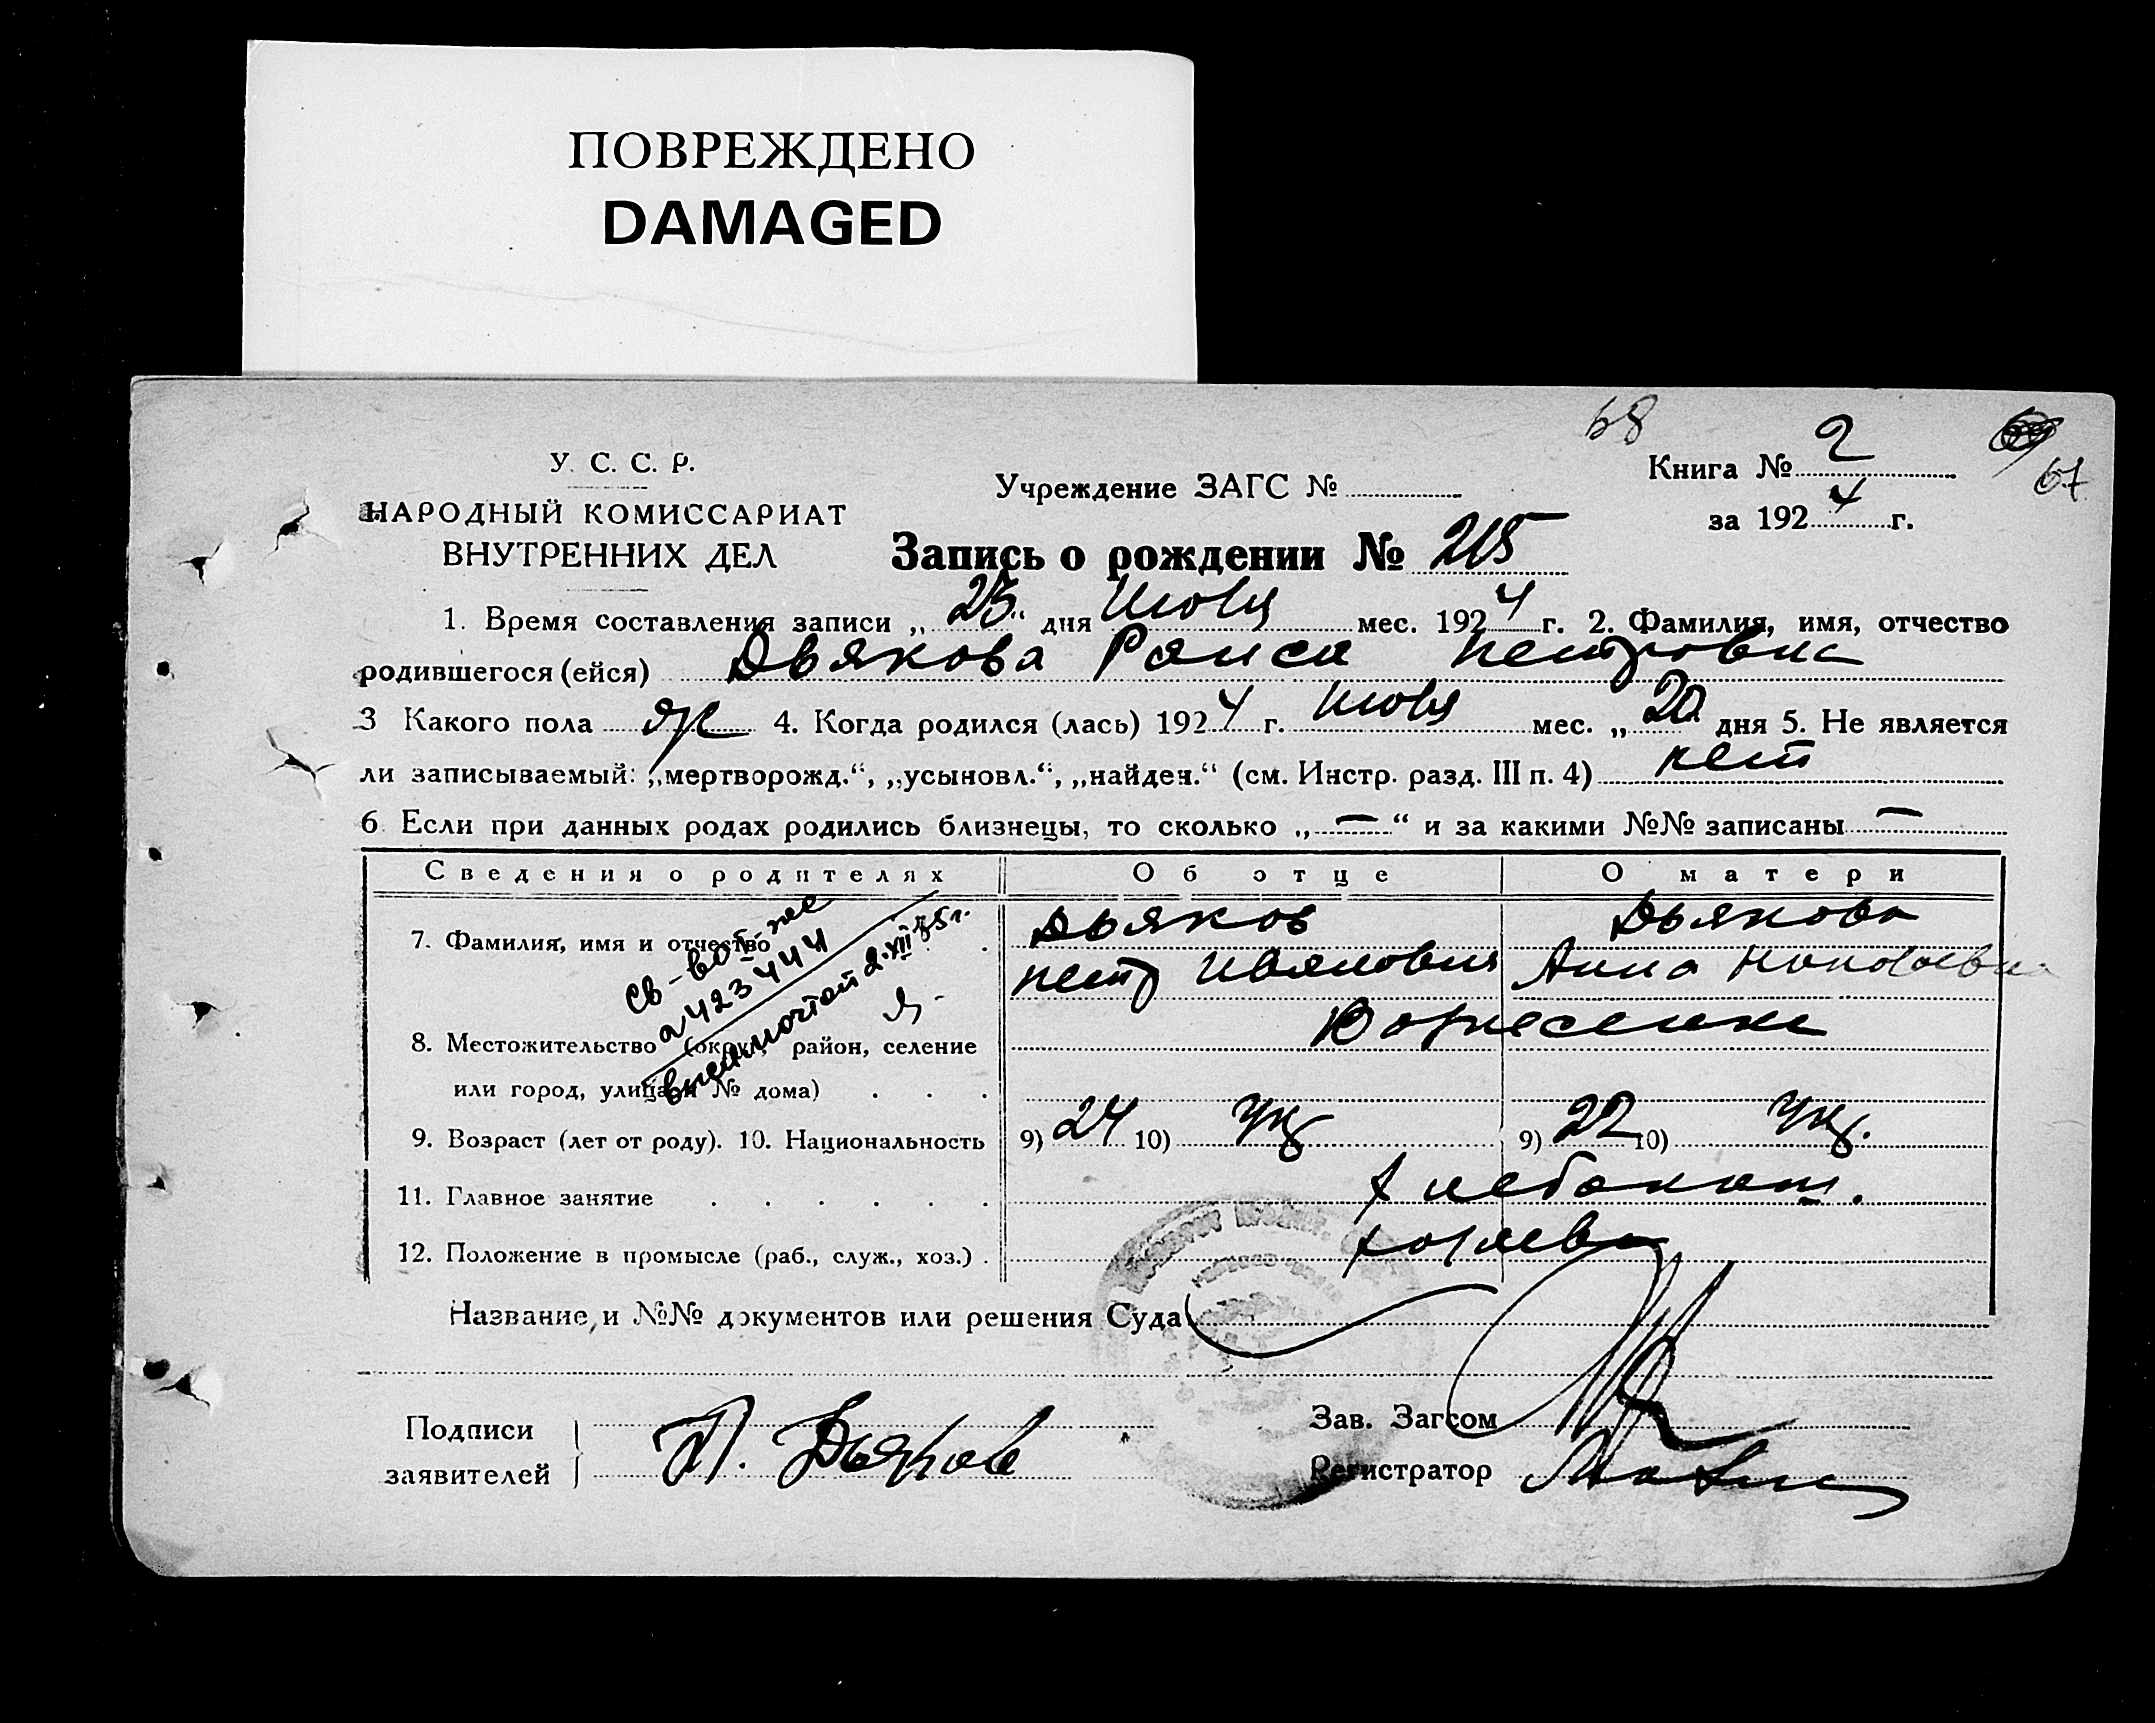 ПОВРЕЖДЕНО
DAMAGED
68
У. С. С. Р.
НАРОДНЫЙ КОМИССАРИАТ
ВНУТРЕННИХ ДЕЛ
Учреждение ЗАГС №
Книга № 2
67
за 1924 г.
Запись о рождении № 215
1. Время составления записи „ 25 “ дня Июля мес. 1924 г. 2. Фамилия, имя, отчество
родившегося (ейся) Дьякова Раиса Петровна
3 Какого пола ж 4. Когда родился (лась) 1924 г. Июля мес. „ 20 дня 5. Не является
ли записываемый: „мертворожд.“, „усыновл.“, „найден.“ (см. Инстр. разд. III п. 4) нет
6. Если при данных родах родились близнецы, то сколько „ — “ и за какими №№ записаны —
Сведения о родителях Об отце О матери
7. Фамилия, имя и отчество Дьяков Дьякова
Петр Иванович Анна Николаевна
св-во I-же
423444
2.XII
8. Местожительство (округ, район, селение Вознесенка
или город, улица и № дома)
9. Возраст (лет от роду). 10. Национальность 9) 24 10) Ук 9) 22 10) Ук.
11. Главное занятие Хлебопаш.
12. Положение в промысле (раб., служ., хоз.) хозяева
Название и №№ документов или решения Суда
Подписи
заявителей П. Дьяков
Зав. Загсом
Регистратор